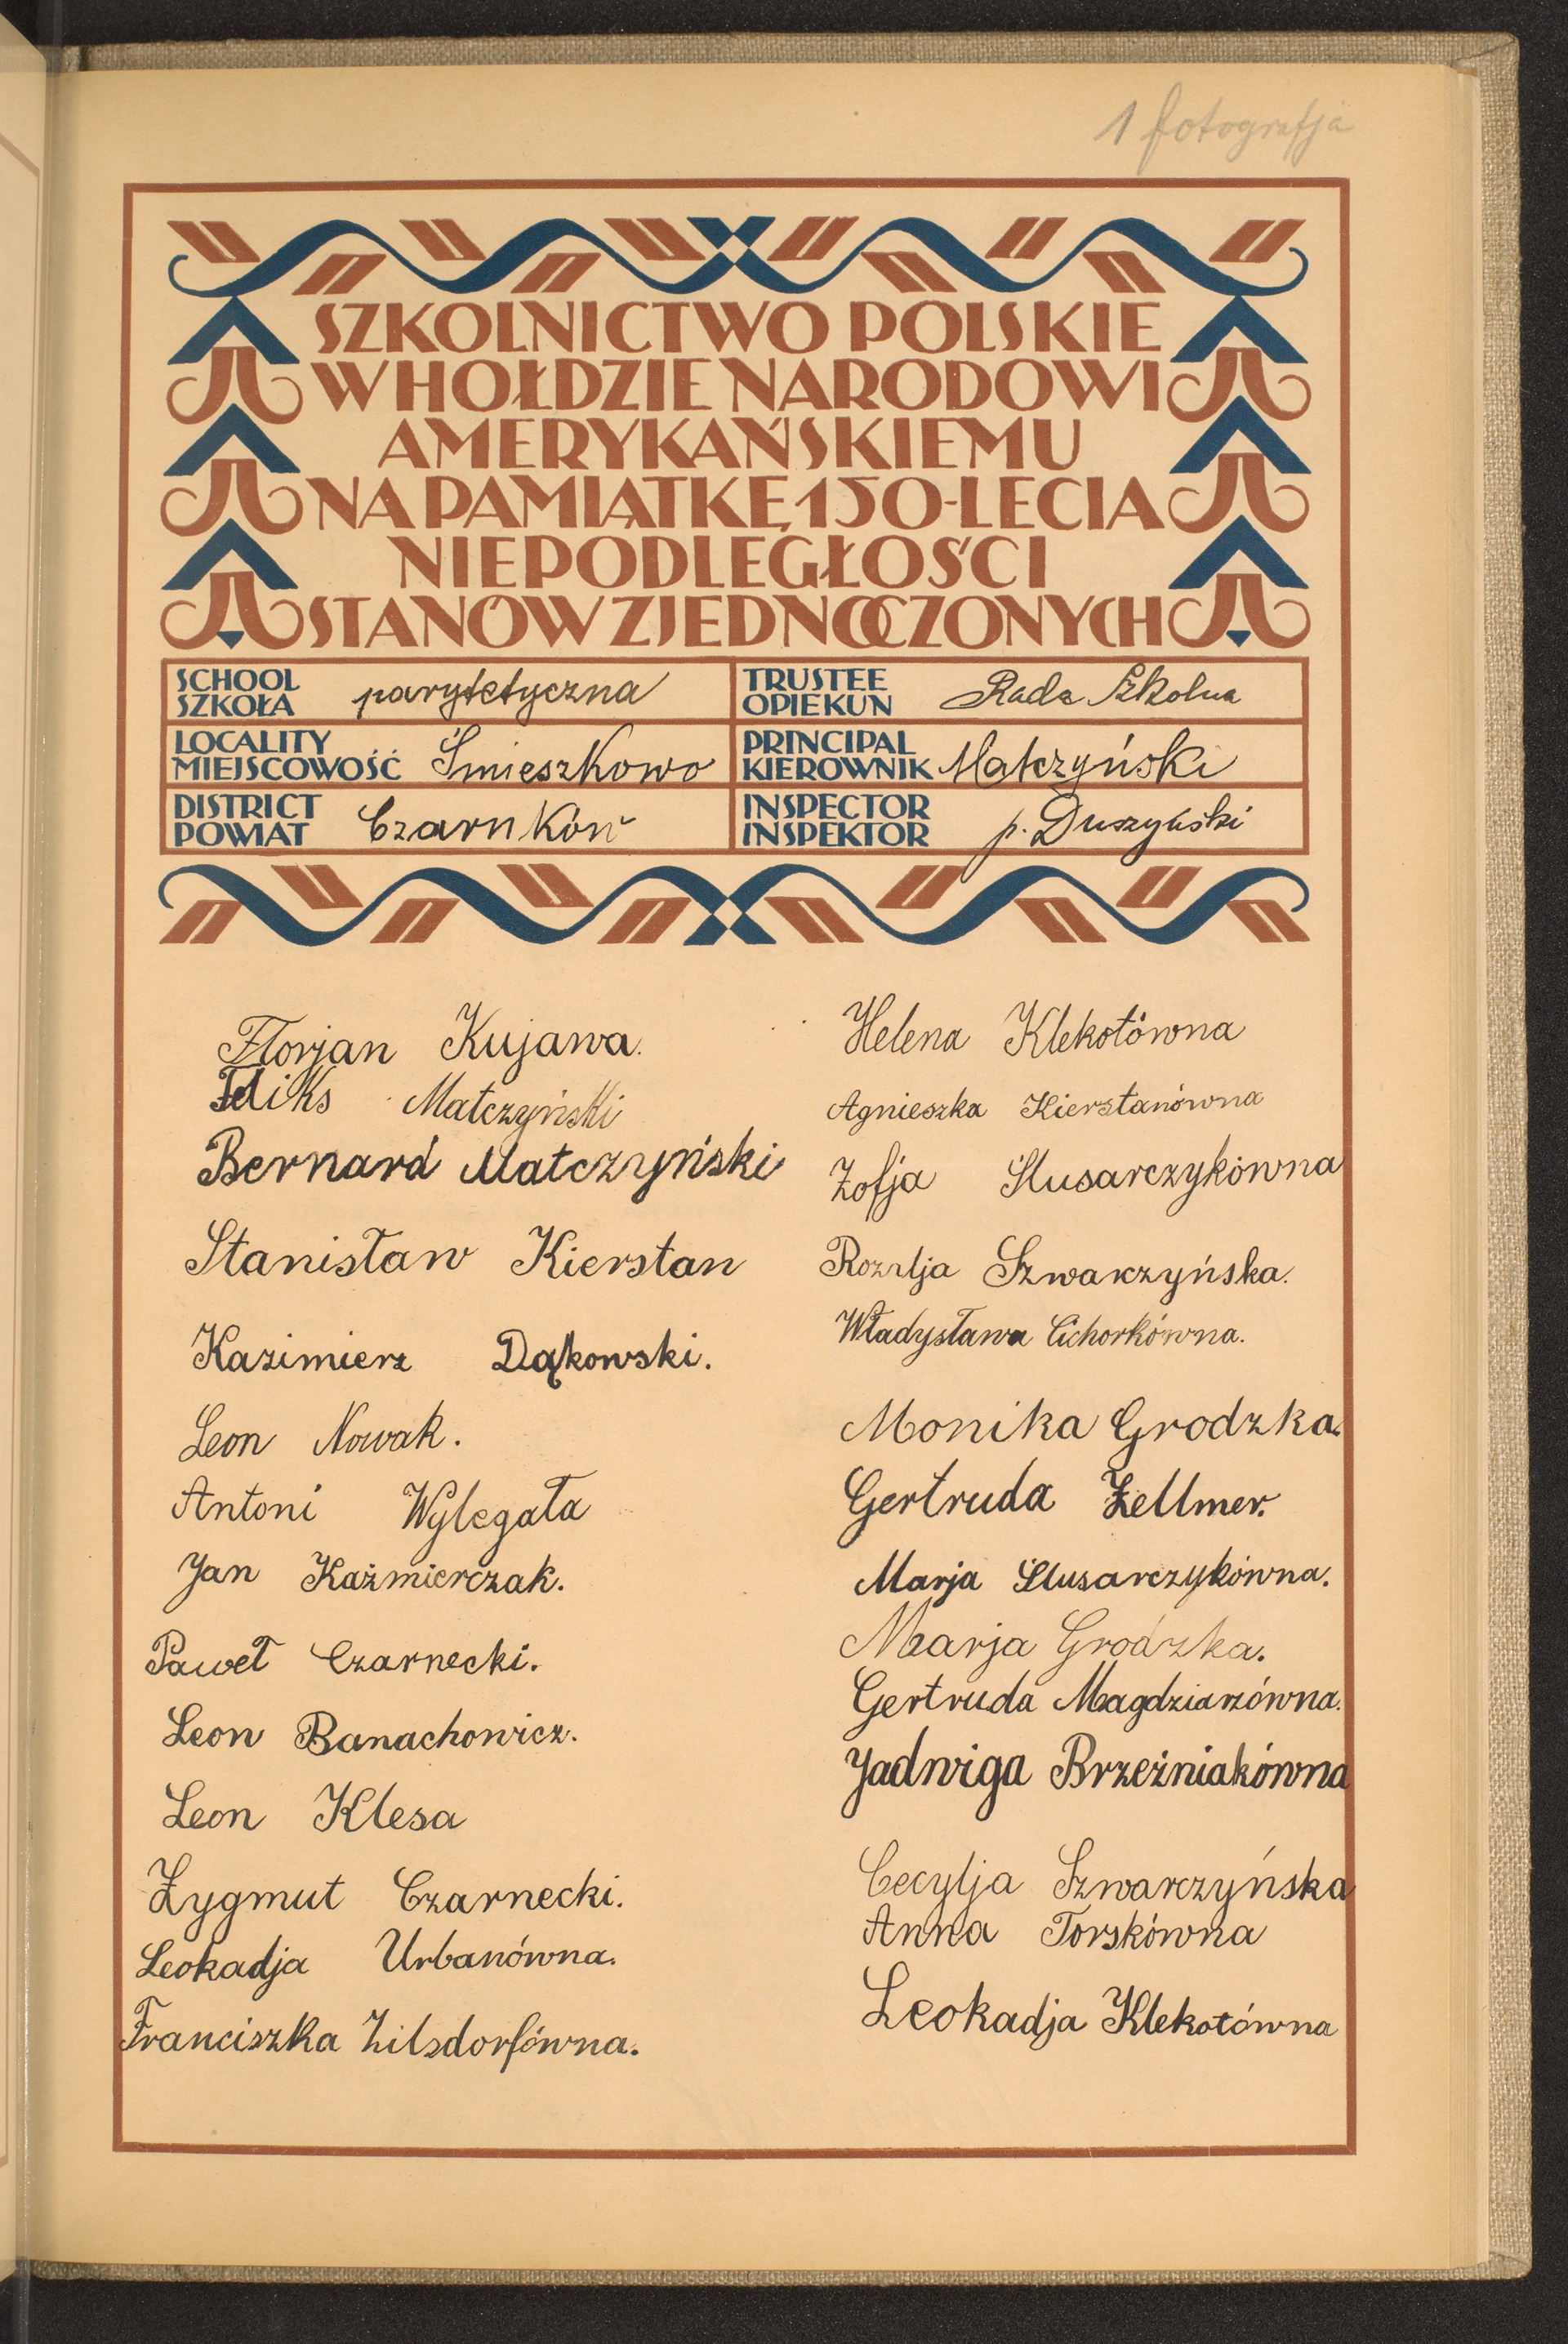 1 fotografja
SZKOLNICTWO POLSKIE
W HOŁDZIE NARODOWI
AMERYKAŃSKIEMU
NA PAMIĄTKĘ 150-LECIA
NIEPODLEGŁOŚCI
STANÓW ZJEDNOCZONYCH
SCHOOL
SZKOŁA parytetyczna
TRUSTEE
OPIEKUN Rada Szkolna
LOCALITY
MIEJSCOWOŚĆ Śmieszkowo
PRINCIPAL
KIEROWNIK Matczyński
DISTRICT
POWIAT Czarnków
INSPECTOR
INSPEKTOR p. Duszyński
Florjan Kujawa.
Feliks Matczyński
Bernard Matczyński
Stanisław Kierstan
Kazimierz Dąkowski.
Leon Nowak.
Antoni Wylegała
Jan Kaźmierczak.
Paweł Czarnecki.
Leon Banachowicz.
Leon Klesa
Zygmut Czarnecki.
Leokadja Urbanówna.
Franciszka Zilsdorfówna.
Helena Klekotówna
Agnieszka Kierstanówna
Zofja Ślusarczykówna
Rozalja Szwarczyńska.
Władysława Cichorkówna.
Monika Grodzka.
Gertruda Zellmer.
Marja Ślusarczykówna.
Marja Grodzka.
Gertruda Magdziarzówna.
Jadwiga Brzeźniakówna
Cecylja Szwarczyńska
Anna Torskówna
Leokadja Klekotówna